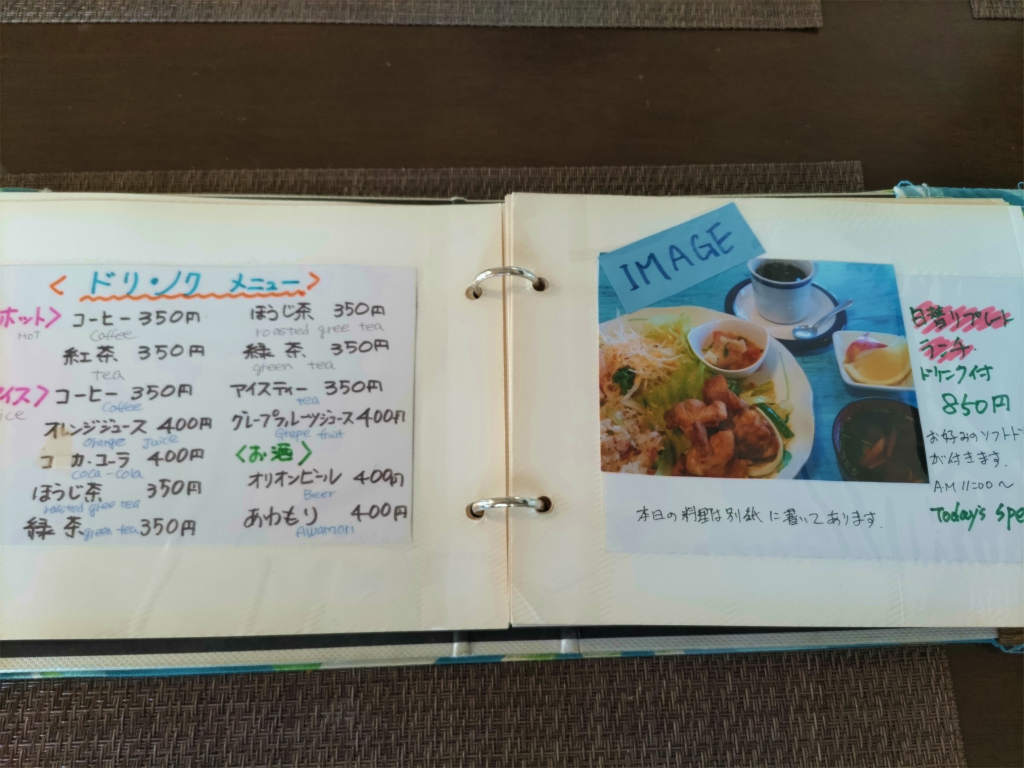 < ドリンク メニュー >
ホット>
HOT
コーヒー 350円
Coffee
紅茶 350円
tea
ほうじ茶 350円
roasted gree tea
緑茶 350円
green tea
イス>
ice
コーヒー 350円
Coffee
オレンジジュース 400円
Orange Juice
コカ・コーラ 400円
coca-cola
ほうじ茶 350円
roasted gree tea
緑茶 green tea 350円
アイスティー 350円
tea
グレープフルーツジュース 400円
Grape fruit
<お酒>
オリオンビール 400円
Beer
あわもり 400円
AWAMORI
IMAGE
本日の料理は別紙に書いてあります.
日替りプレート
ランチ
ドリンク付
850円
お好みのソフトド
が付きます.
AM 11:00～
Today's Spe